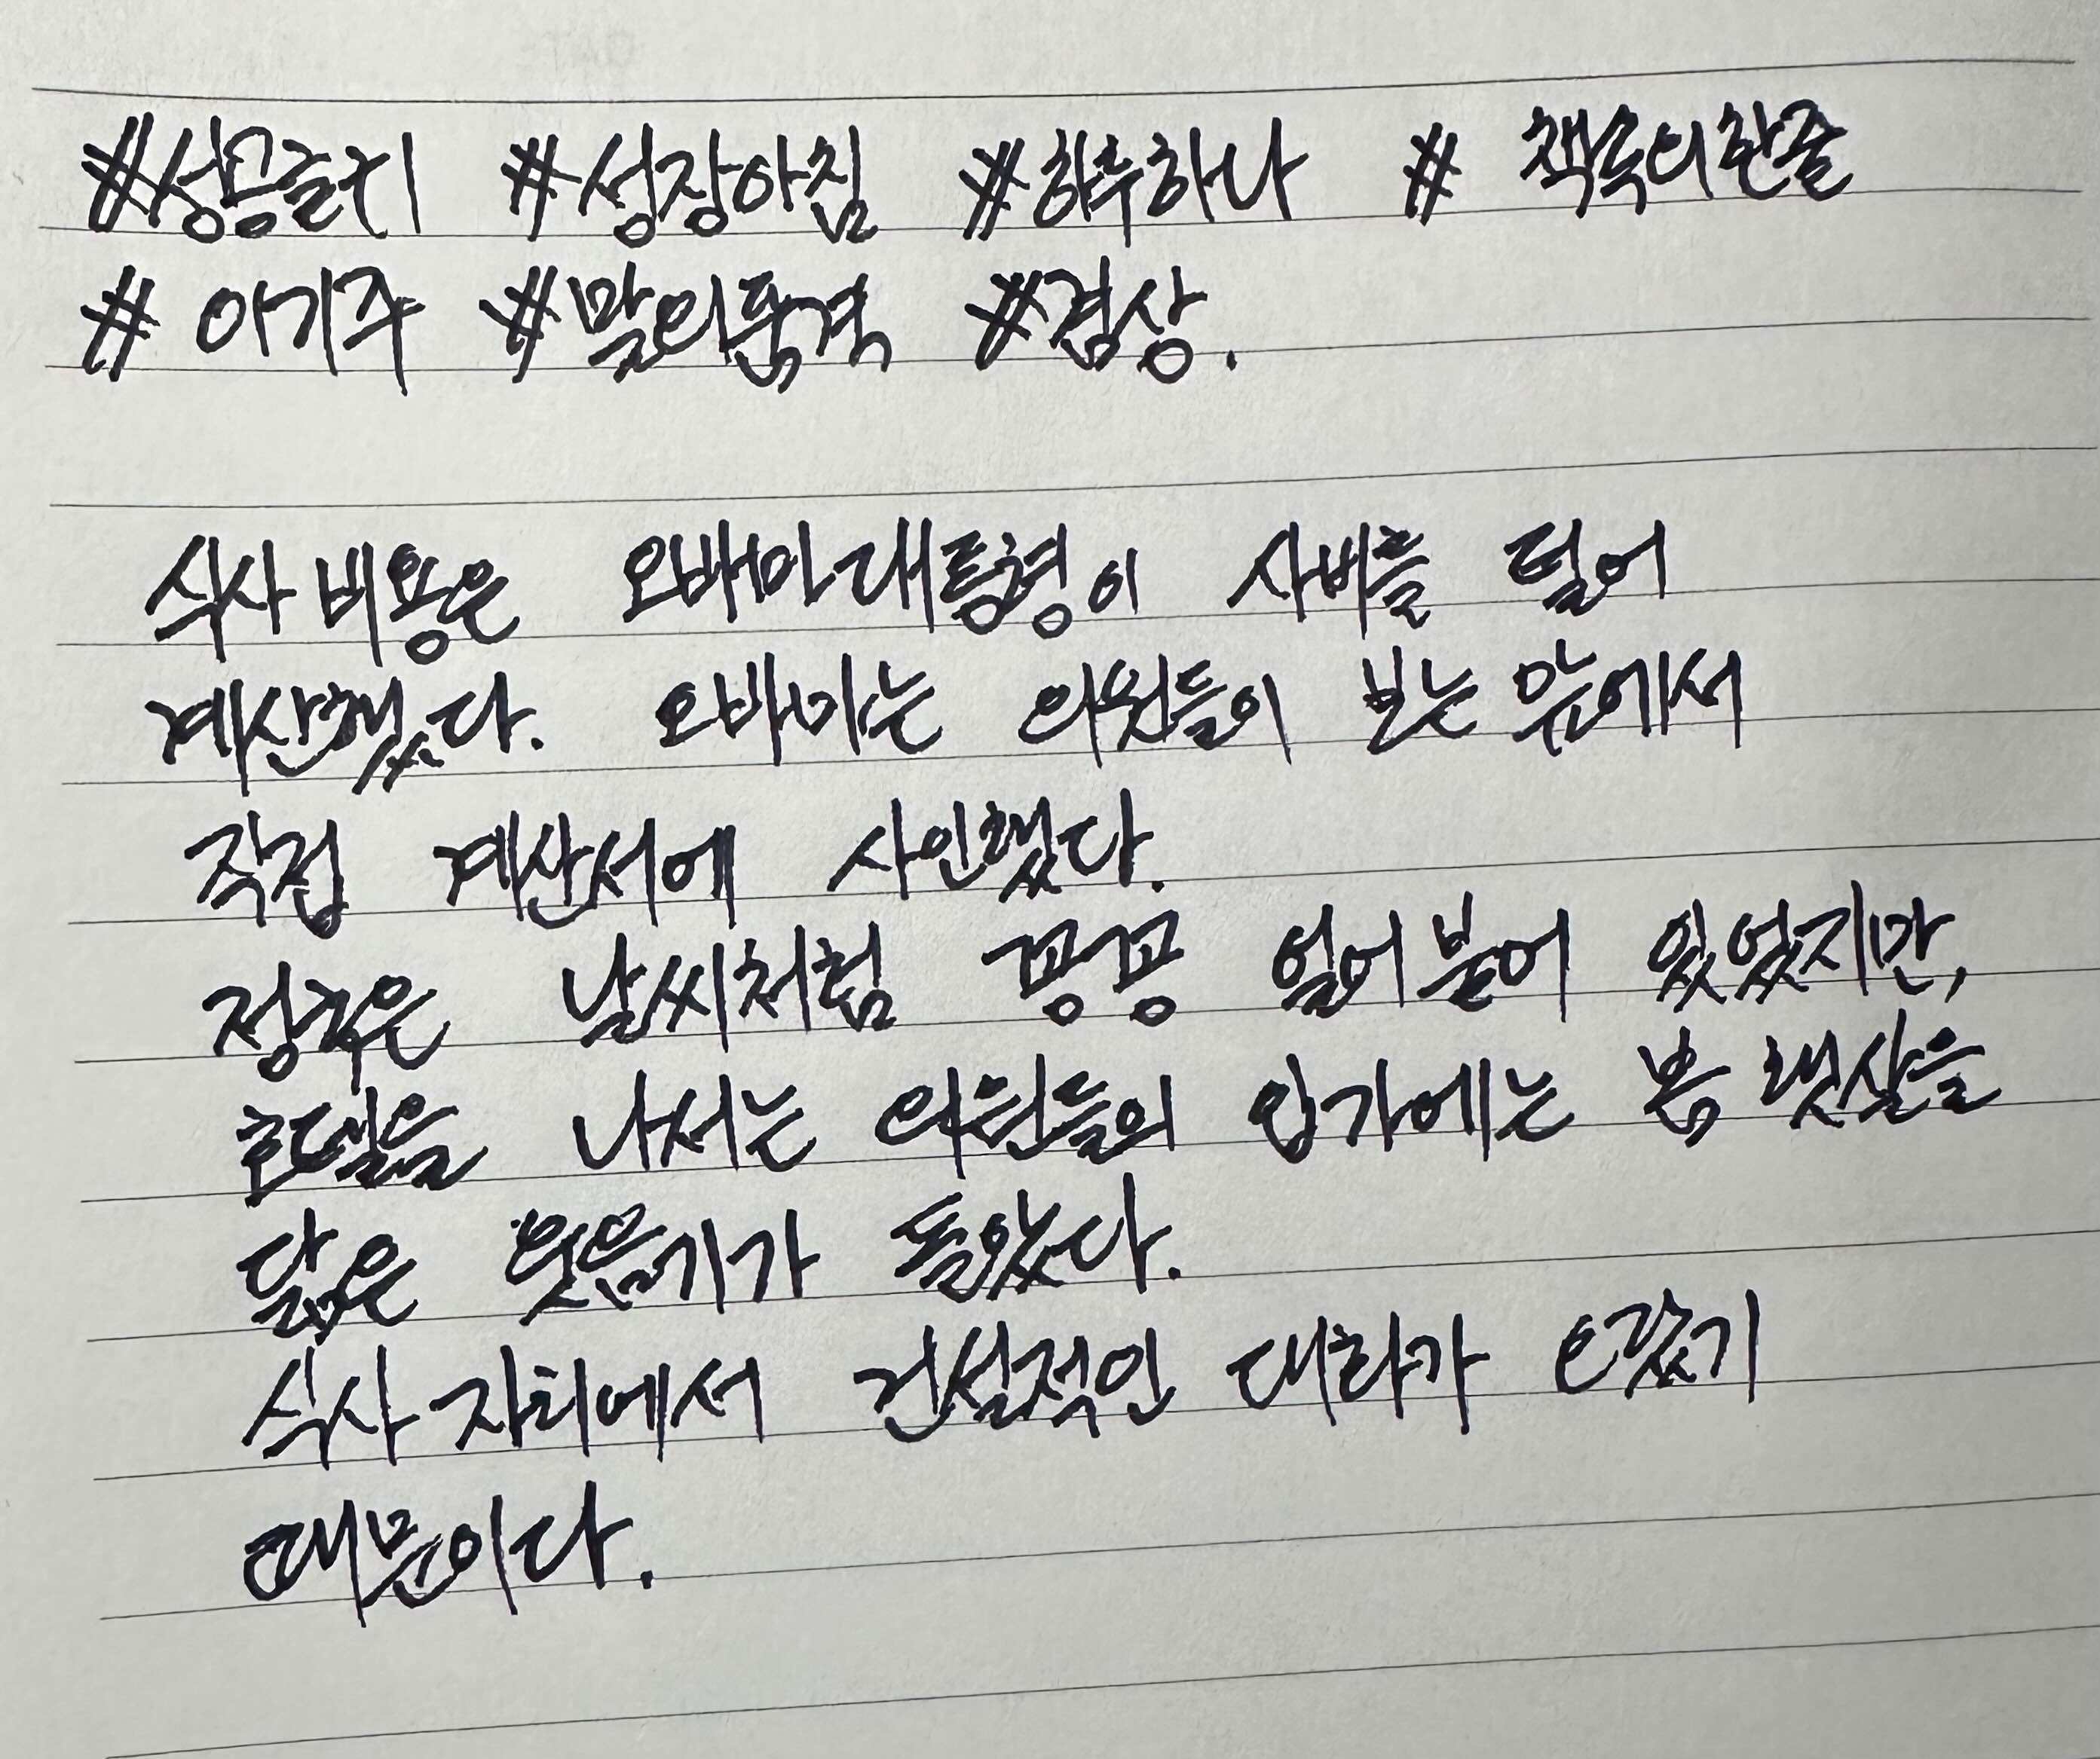 #성공글귀 #성장아침 #하루하나 # 책속의한줄
# 이기주 #말의품격 #겸상.
식사 비용은 오바마 대통령이 사비를 털어
계산했다. 오바마는 의원들이 보는 앞에서
직접 계산서에 사인했다.
정국은 날씨처럼 꽁꽁 얼어붙어 있었지만,
호텔을 나서는 의원들의 입가에는 봄 햇살을
닮은 웃음기가 돌았다.
식사 자리에서 건설적인 대화가 오갔기
때문이다.